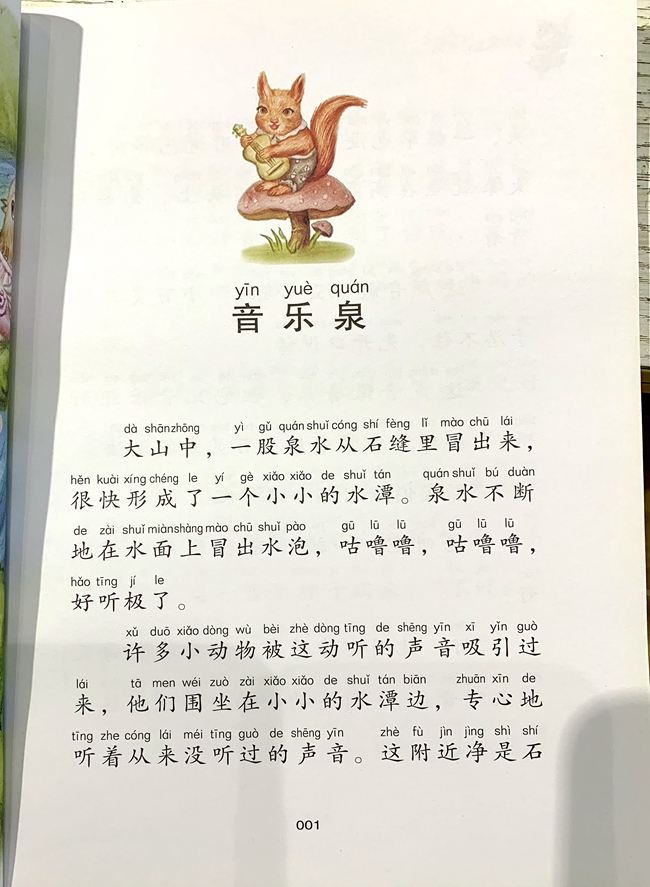 yīn yuè quán
音乐泉
dà shānzhōng yì gǔ quánshuǐ cóng shí fèng lǐ mào chū lái
大山中，一股泉水从石缝里冒出来，
hěn kuài xíng chéng le yí gè xiǎo xiǎo de shuǐ tán quánshuǐ bú duàn
很快形成了一个小小的水潭。泉水不断
de zài shuǐ miànshàng mào chū shuǐ pào gū lū lū gū lū lū
地在水面上冒出水泡，咕噜噜，咕噜噜，
hǎo tīng jí le
好听极了。
xǔ duō xiǎo dòng wù bèi zhè dòng tīng de shēng yīn xī yǐn guò
许多小动物被这动听的声音吸引过
lái tā men wéi zuò zài xiǎo xiǎo de shuǐ tán biān zhuān xīn de
来，他们围坐在小小的水潭边，专心地
tīng zhe cóng lái méi tīng guò de shēng yīn zhè fù jìn jìng shì shí
听着从来没听过的声音。这附近净是石
001